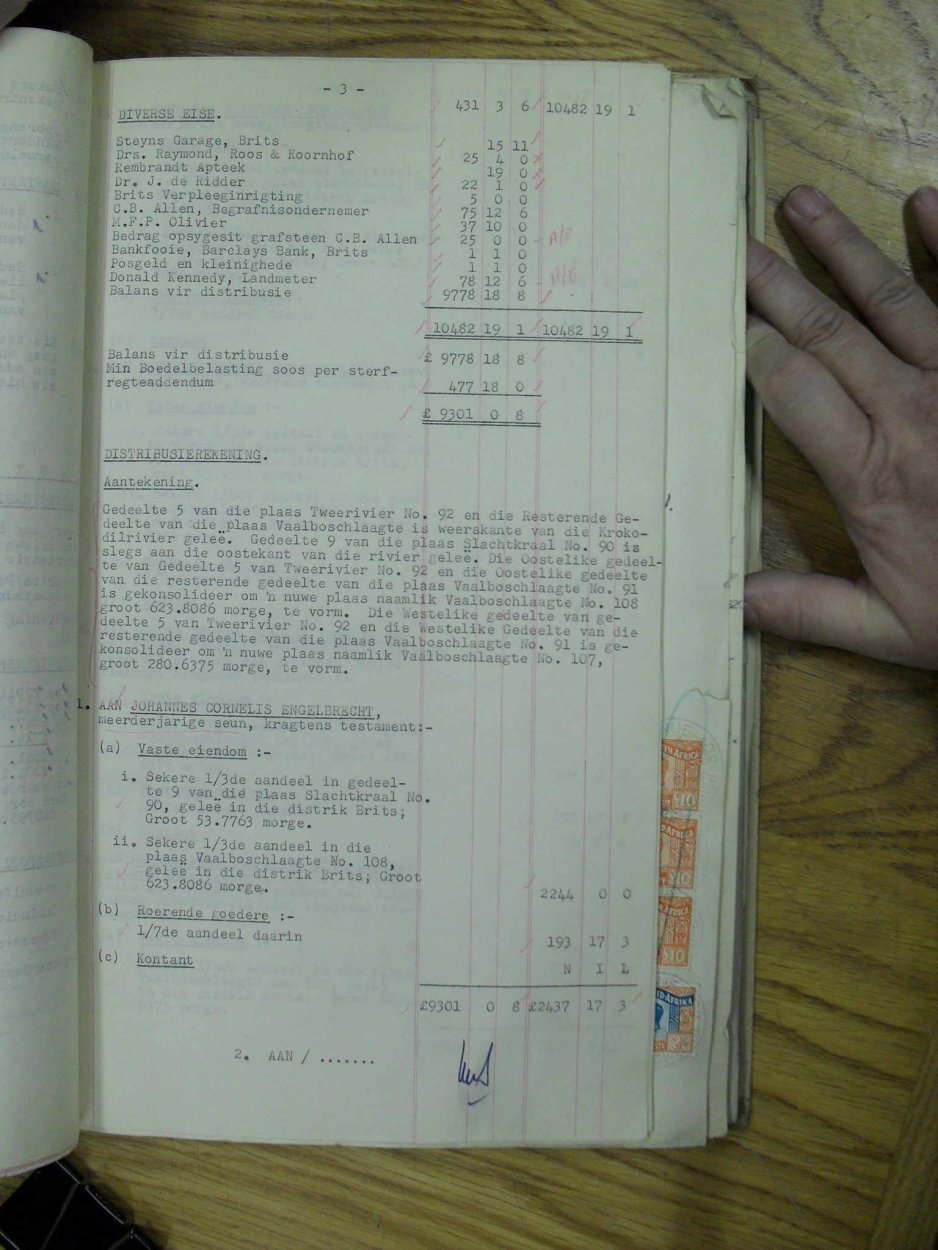 - 3 -
DIVERSE EISE. 431 3 6 10482 19 1
Steyns Garage, Brits 15 11
Drs. Raymond, Roos & Koornhof 25 4 0
Rembrandt Apteek 19 0
Dr. J. de Ridder 22 1 0
Brits Verpleeginrigting 5 0 0
C.B. Allen, Begrafnisondernemer 75 12 6
M.F.P. Olivier 37 10 0
Bedrag opsygesit grafsteen C.B. Allen 25 0 0 A/B
Bankfooie, Barclays Bank, Brits 1 1 0
Posgeld en kleinighede 1 1 0
Donald Kennedy, Landmeter 78 12 6 A/B
Balans vir distribusie 9778 18 8
10482 19 1 10482 19 1
Balans vir distribusie £ 9778 18 8
Min Boedelbelasting soos per sterf-
regteaddendum 477 18 0
£ 9301 0 8
DISTRIBUSIEREKENING.
Aantekening.
Gedeelte 5 van die plaas Tweerivier No. 92 en die Resterende Ge-
deelte van die plaas Vaalboschlaagte is weerskante van die Kroko-
dilrivier geleë. Gedeelte 9 van die plaas Slachtkraal No. 90 is
slegs aan die oostekant van die rivier geleë. Die Oostelike gedeel-
te van Gedeelte 5 van Tweerivier No. 92 en die Oostelike gedeelte
van die resterende gedeelte van die plaas Vaalboschlaagte No. 91
is gekonsolideer om 'n nuwe plaas naamlik Vaalboschlaagte No. 108
groot 623.8086 morge, te vorm. Die Westelike gedeelte van ge-
deelte 5 van Tweerivier No. 92 en die Westelike Gedeelte van die
resterende gedeelte van die plaas Vaalboschlaagte No. 91 is ge-
konsolideer om 'n nuwe plaas naamlik Vaalboschlaagte No. 107,
groot 280.6375 morge, te vorm.
1. AAN JOHANNES CORNELIS ENGELBRECHT,
meerderjarige seun, kragtens testament:-
(a) Vaste eiendom :-
i. Sekere 1/3de aandeel in gedeel-
te 9 van die plaas Slachtkraal No.
90, geleë in die distrik Brits;
Groot 53.7763 morge.
ii. Sekere 1/3de aandeel in die
plaas Vaalboschlaagte No. 108,
geleë in die distrik Brits; Groot
623.8086 morge. 2244 0 0
(b) Roerende goedere :-
1/7de aandeel daarin 193 17 3
(c) Kontant N I L
£9301 0 8 £2437 17 3
2. AAN / .......